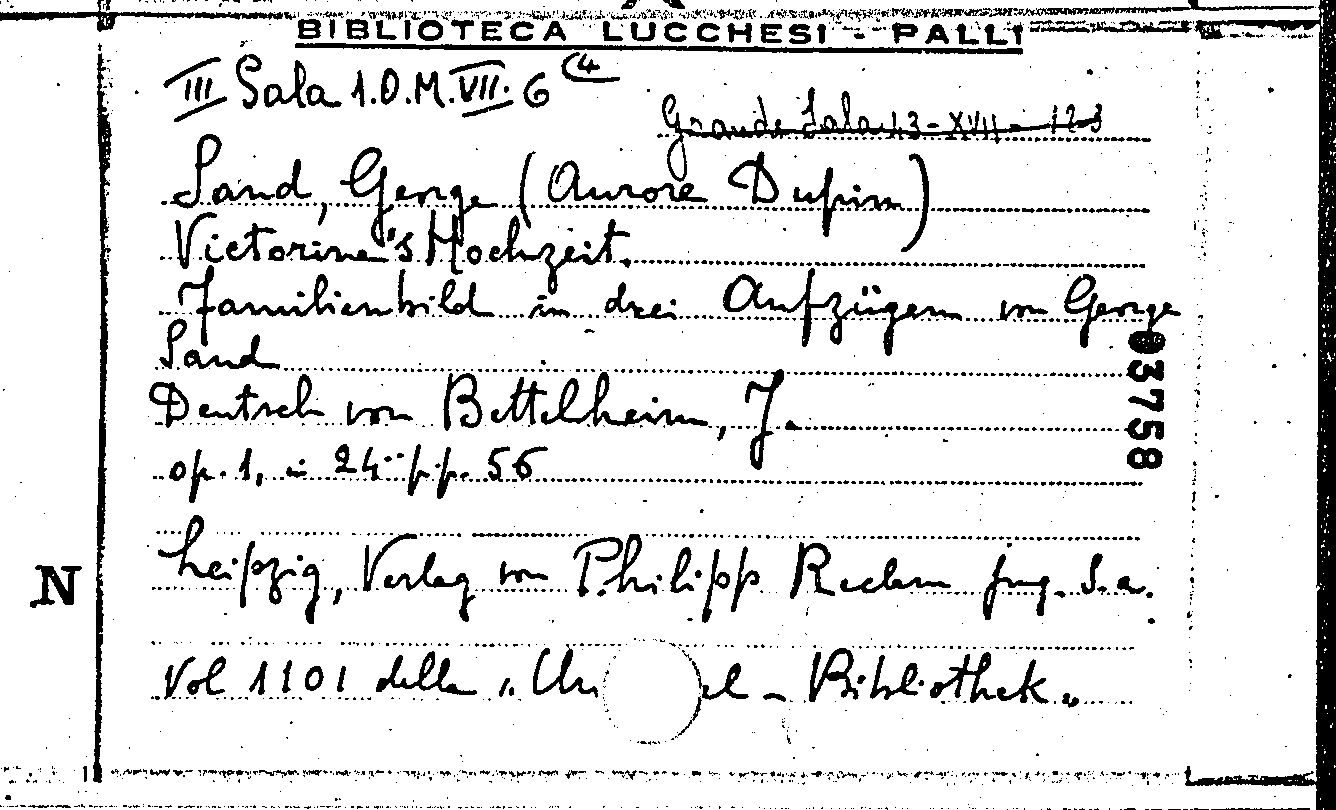 BIBLIOTECA LUCCHESI - PALLI
III Sala 1.O.M.VII. 6 (4
Grande Sala 43-XVII- 123
Sand, George (Aurore Dupin)
Victorine's Hochzeit.
Familienbild in drei Aufzügen von George
Sand
03758
Deutsch von Bettelheim, J.
op. 1, in 24° pp. 56
N
Leipzig, Verlag von Philipp Reclam jung. S.a.
Vol 1101 della "Un el - Bibliothek"